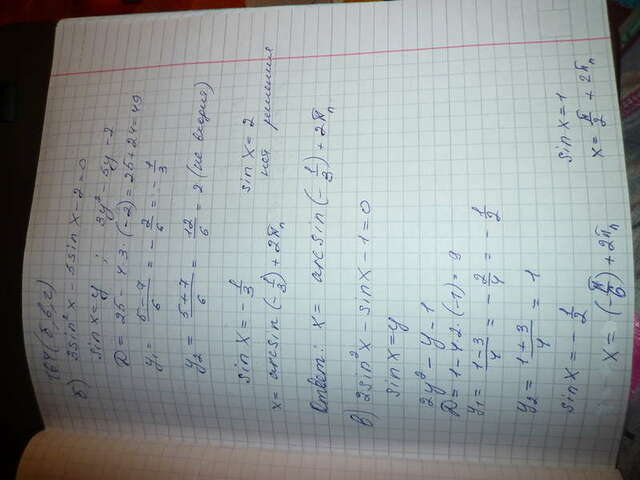 164 (б, в, г)
б) 3sin²x - 5sin x - 2 = 0
sin x = y ; 3y² - 5y - 2
D = 25 - 4·3·(-2) = 25 + 24 = 49
y₁ = (5-7)/6 = -2/6 = -1/3
y₂ = (5+7)/6 = 12/6 = 2 (не входит)
sin x = -1/3 sin x = 2
x = arcsin(-1/3) + 2πn нет решения
Ответ: x = arcsin(-1/3) + 2πn
в) 2sin²x - sin x - 1 = 0
sin x = y
2y² - y - 1
D = 1 - 4·2·(-1) = 9
y₁ = (1-3)/4 = -2/4 = -1/2
y₂ = (1+3)/4 = 1
sin x = -1/2 sin x = 1
x = (-π/6) + 2πn x = π/2 + 2πn